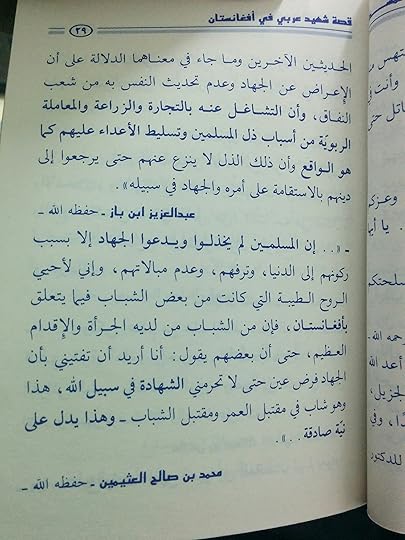 قصة شهيد عربي في أفغانستان
٢٩
الحديثين الآخرين وما جاء في معناهما الدلالة على أن
الإعراض عن الجهاد وعدم تحديث النفس به من شعب
النفاق، وأن التشاغل عنه بالتجارة والزراعة والمعاملة
الربويّة من أسباب ذل المسلمين وتسليط الأعداء عليهم كما
هو الواقع وأن ذلك الذل لا ينزع عنهم حتى يرجعوا إلى
دينهم بالاستقامة على أمره والجهاد في سبيله».
عبدالعزيز ابن باز ـ حفظه الله ـ
ـ «. . إن المسلمين لم يخذلوا ويدعوا الجهاد إلا بسبب
ركونهم إلى الدنيا، وترفهم، وعدم مبالاتهم، وإني لأحيي
الروح الطيبة التي كانت من بعض الشباب فيما يتعلق
بأفغانستان، فإن من الشباب من لديه الجرأة والإقدام
العظيم، حتى أن بعضهم يقول: أنا أريد أن تفتيني بأن
الجهاد فرض عين حتى لا تحرمني الشهادة في سبيل الله، هذا
وهو شاب في مقتبل العمر ومقتبل الشباب ـ وهذا يدل على
نيّة صادقة . .».
محمد بن صالح العثيمين ـ حفظه الله ـ